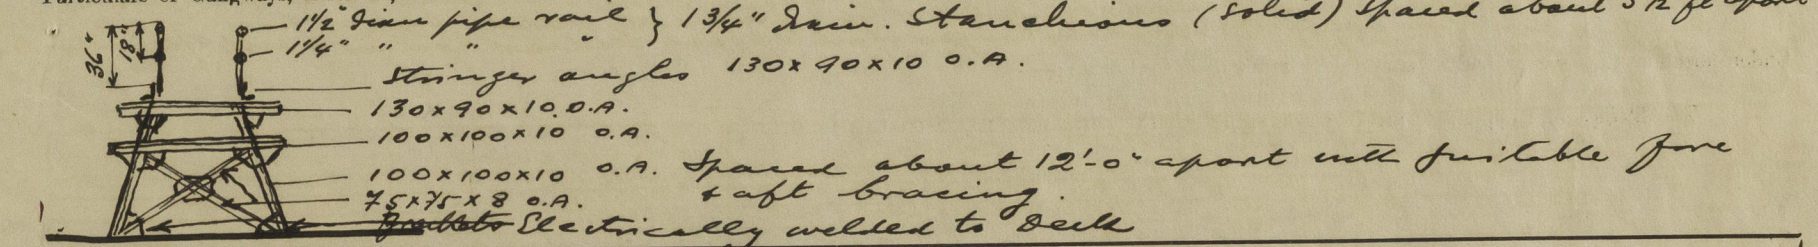 Particulars of Gangways,
1½" Diam pipe rail } 1¾" Diam. Stanchions (solid) spaced about 5½ ft apart
1¼" " " "
36"
18"
Stringer angles 130 x 90 x 10 O.A.
130 x 90 x 10 O.A.
100 x 100 x 10 O.A.
100 x 100 x 10 O.A. Spaced about 12'-0" apart with suitable fore
75 x 75 x 8 O.A. & aft bracing.
Brackets Electrically welded to Deck